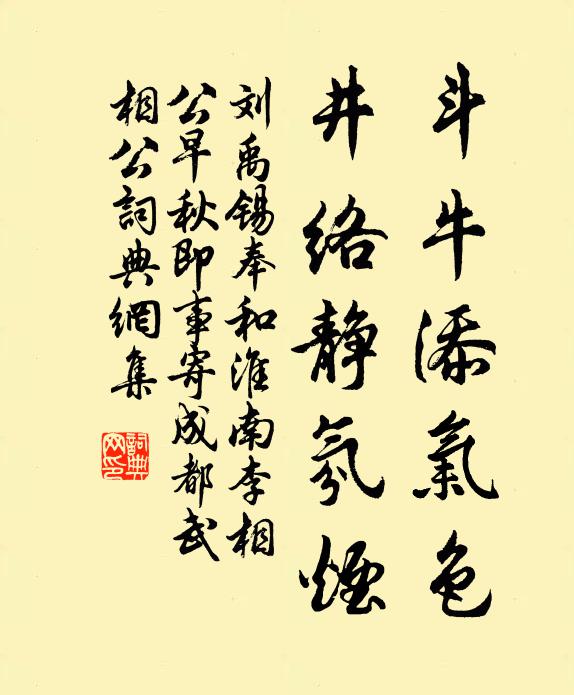 斗牛添氣色
井络静氛煙
刘禹锡奉和淮南李相
公早秋即事寄成都武
相公詞典網集
詞典網印